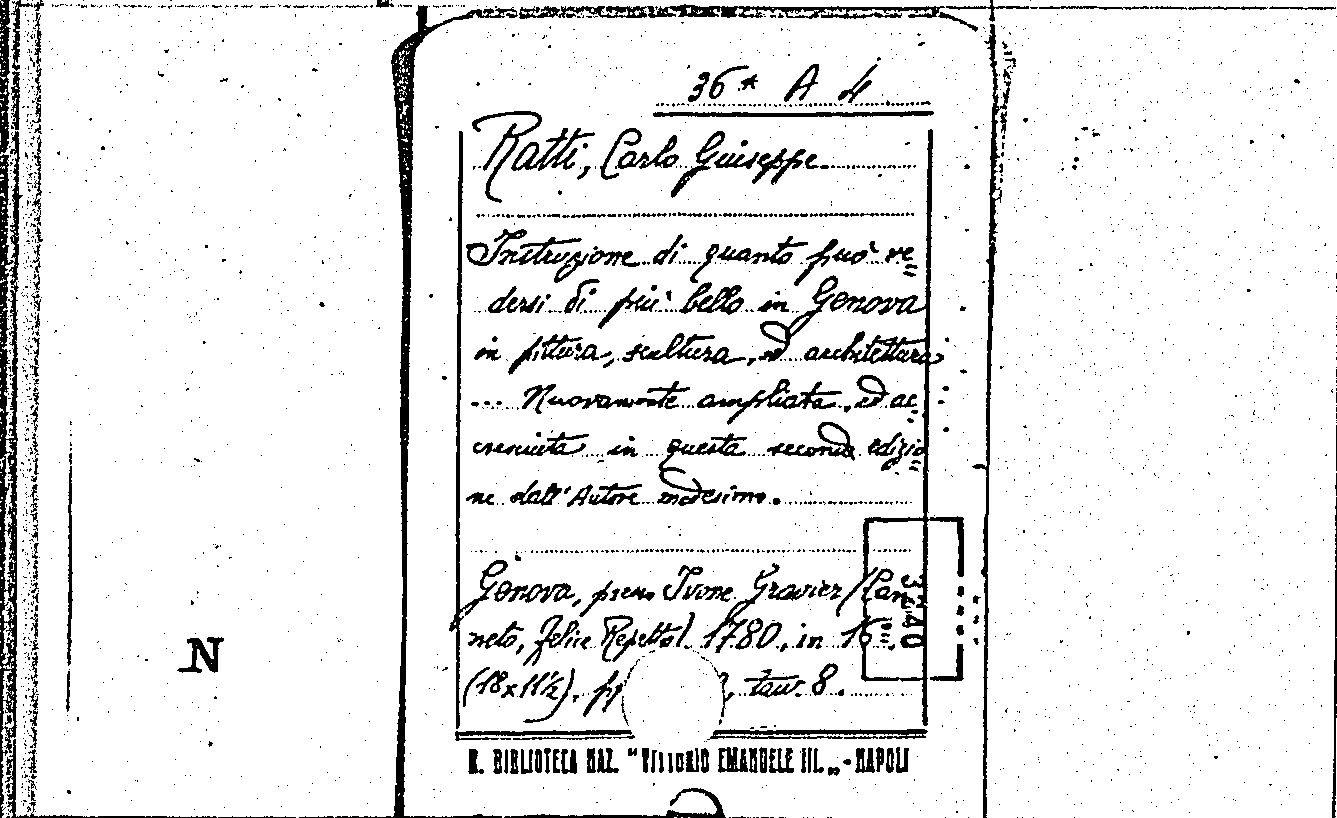 36* A 4
Ratti, Carlo Giuseppe.
Instruzione di quanto può ve=
dersi di più bello in Genova
in pittura, scultura, ed architettura
... Nuovamente ampliata, ed ac=
cresciuta in questa seconda edizio=
ne dall'Autore medesimo.
Genova, presso Ivone Gravier (Can
neto, Felice Repetto). 1780. in 16°.
(18x11½). pp , tav. 8.
N
R. BIBLIOTECA NAZ. "VITTORIO EMANUELE III.„ - NAPOLI